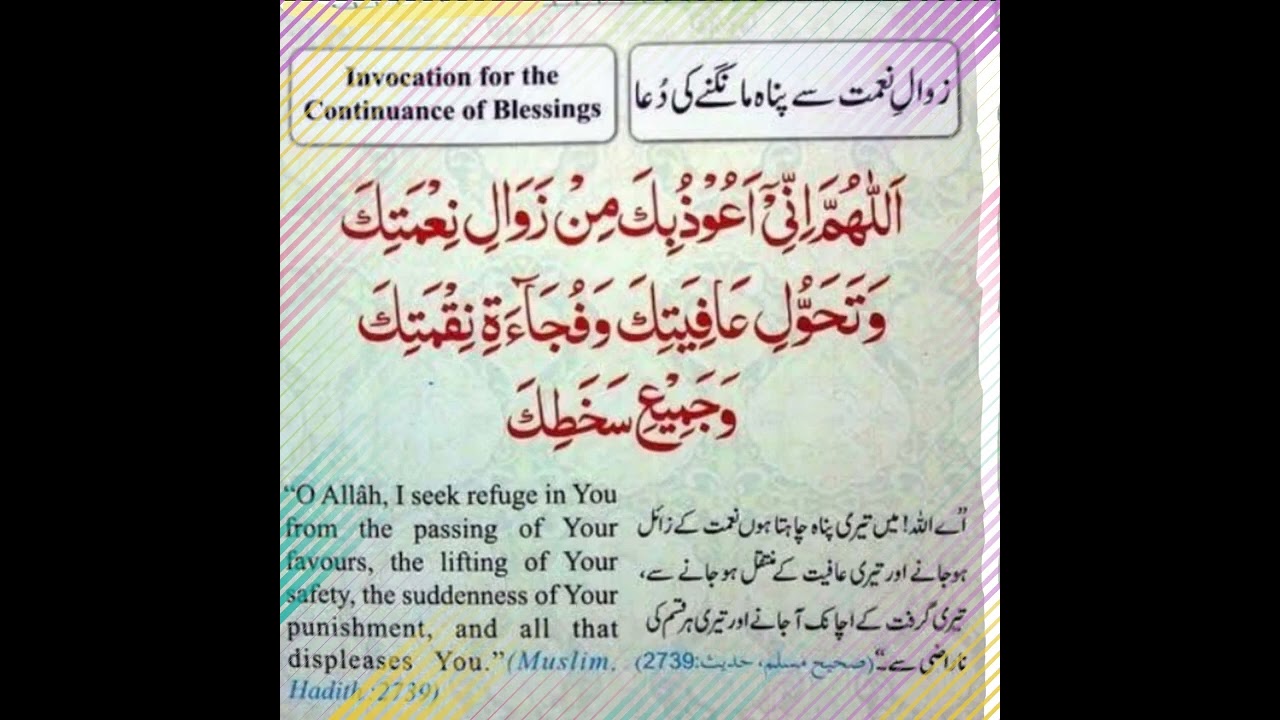 Invocation for the
Continuance of Blessings
زوالِ نعمت سے پناہ مانگنے کی دُعا
اَللّٰهُمَّ اِنِّيْٓ اَعُوْذُبِكَ مِنْ زَوَالِ نِعْمَتِكَ
وَتَحَوُّلِ عَافِيَتِكَ وَفُجَآءَةِ نِقْمَتِكَ
وَجَمِيْعِ سَخَطِكَ
“O Allâh, I seek refuge in You
from the passing of Your
favours, the lifting of Your
safety, the suddenness of Your
punishment, and all that
displeases You.” (Muslim,
Hadith:2739)
”اے اللہ! میں تیری پناہ چاہتا ہوں نعمت کے زائل
ہو جانے اور تیری عافیت کے منتقل ہو جانے سے،
تیری گرفت کے اچانک آ جانے اور تیری ہر قسم کی
ناراضی سے۔“ (صحیح مسلم، حدیث:2739)